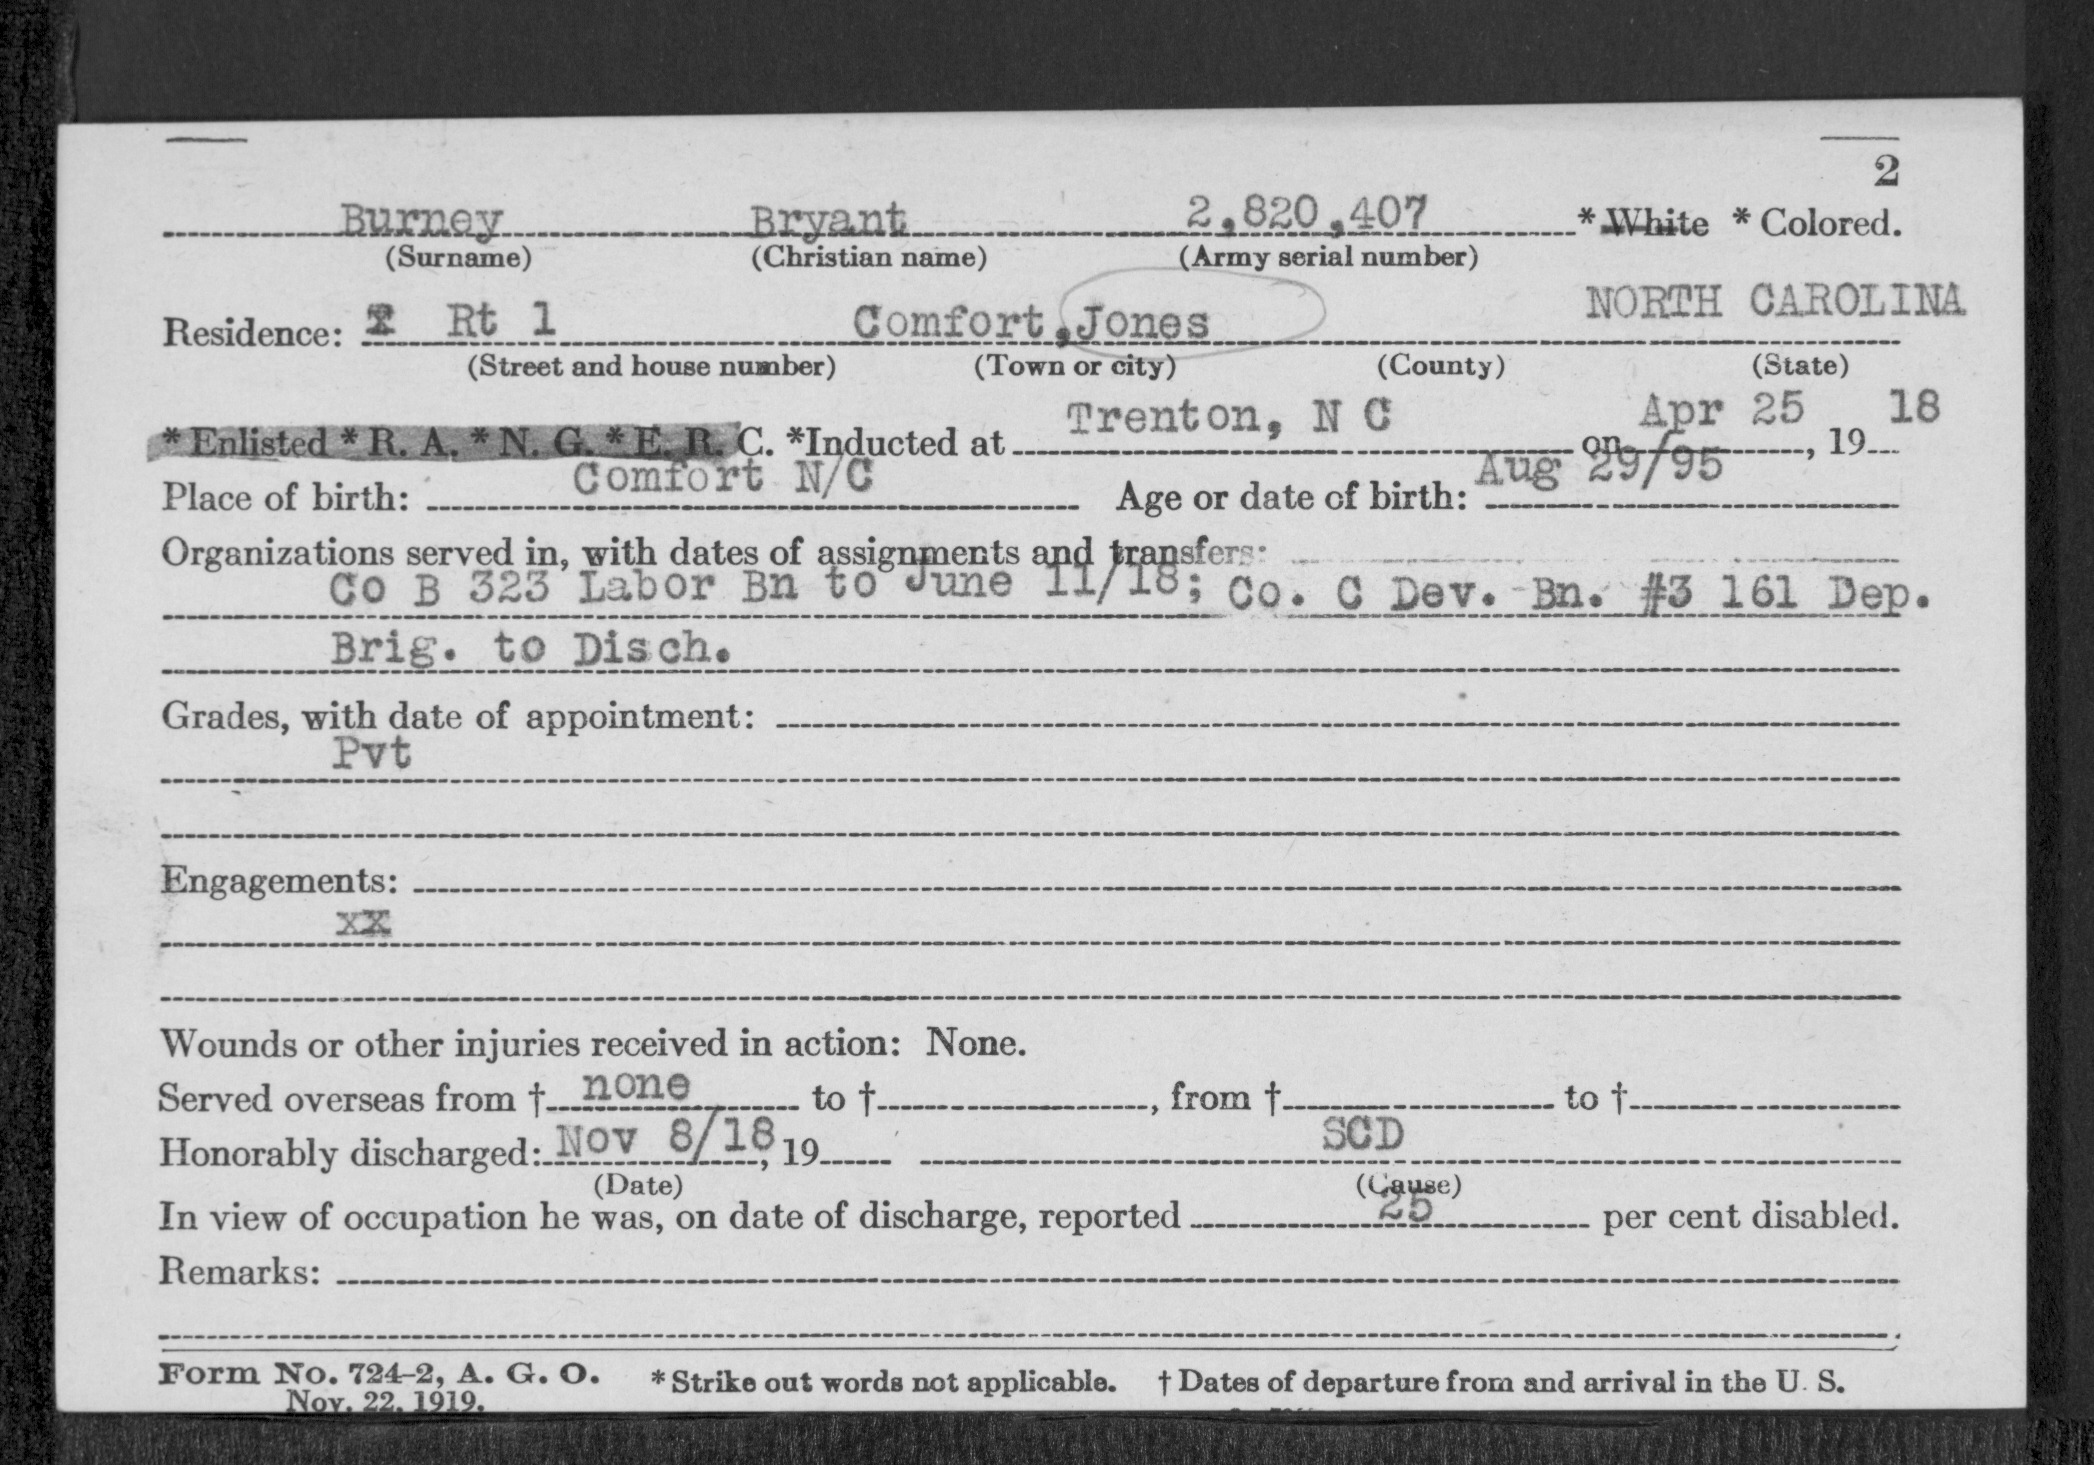 2
Burney Bryant 2,820,407 * White * Colored.
(Surname) (Christian name) (Army serial number)
Residence: Rt 1 Comfort, Jones NORTH CAROLINA
(Street and house number) (Town or city) (County) (State)
* Enlisted * R. A. * N. G. * E. R. C. *Inducted at Trenton, N C on Apr 25, 19 18
Place of birth: Comfort N/C Age or date of birth: Aug 29/95
Organizations served in, with dates of assignments and transfers:
Co B 323 Labor Bn to June 11/18; Co. C Dev. Bn. #3 161 Dep.
Brig. to Disch.
Grades, with date of appointment:
Pvt
Engagements:
xx
Wounds or other injuries received in action: None.
Served overseas from † none to †, from † to †
Honorably discharged: Nov 8/18, 19 SCD
(Date) (Cause)
In view of occupation he was, on date of discharge, reported 25 per cent disabled.
Remarks:
Form No. 724-2, A. G. O. * Strike out words not applicable. † Dates of departure from and arrival in the U. S.
Nov. 22, 1919.